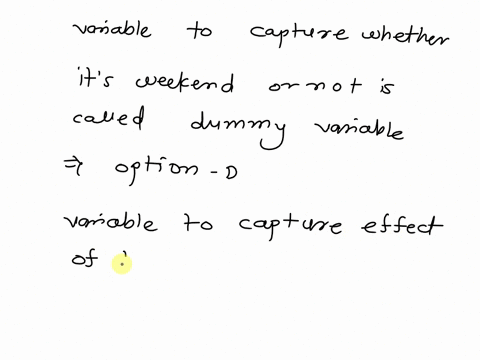 variable to capture whether
it's weekend or not is
called dummy variable
⇒ option - D
variable to capture effect
of